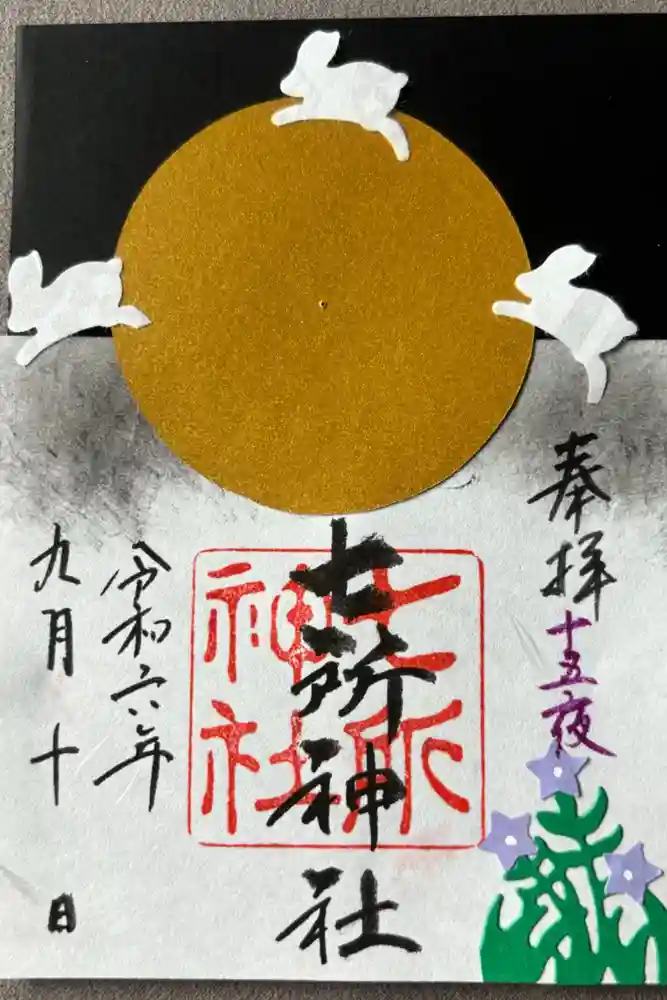 奉拝
十五夜
七所神社
七所
神社
令和六年
九月十 日